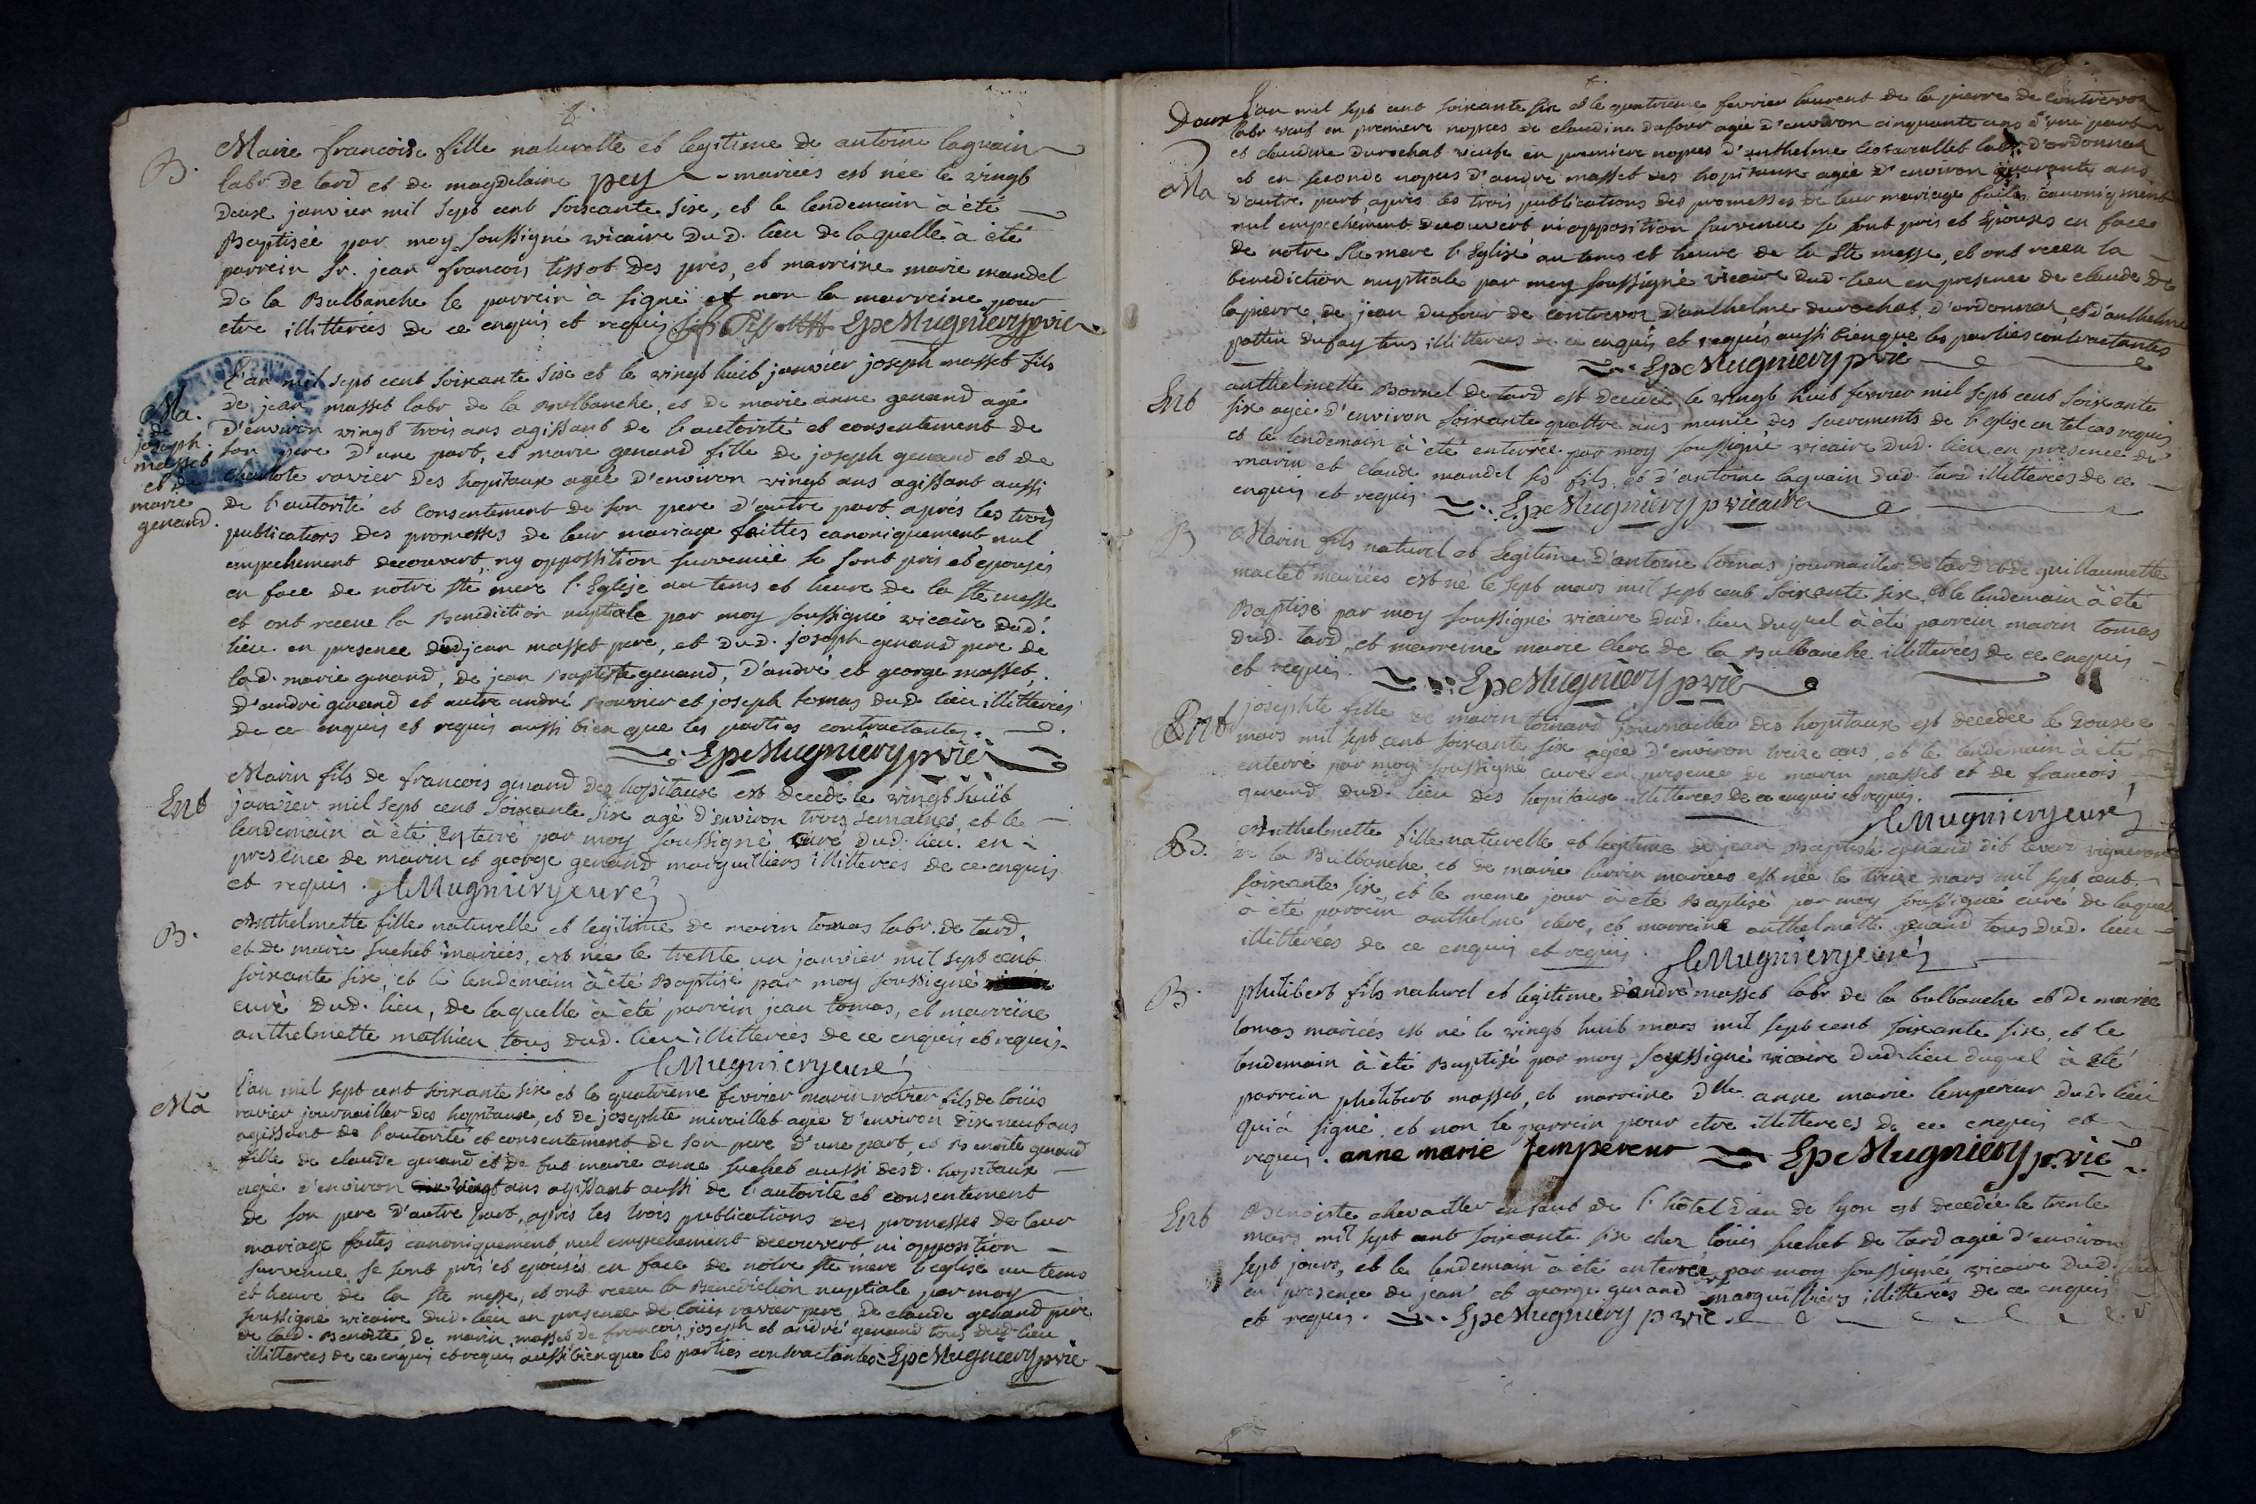 B.
Marie francoise fille naturelle et legitime de antoine laguain
labr de tard et de magdelaine pey mariées est née le vingt
deux janvier mil sept cent soixante six, et le lendemain à été
Baptisée par moy soussigné vicaire dud. lieu de laquelle à été
parrein Sr. jean francois tissot des prés, et marreine marie mandel
de la Bulbanche le parrein à signé et non la marreine pour
etre illitterées de ce enquis et requis EpeMugniery pvic
Ma. de joseph masset et de marie genand.
L'an mil sept cent soixante six et le vingt huit janvier joseph masset fils
de jean masset labr de la Bulbanche, et de marie anne genand agé
d'environ vingt trois ans agissant de l'autorité et consentement de
son pere d'une part, et marie genand fille de joseph genand et de
charlote ravier des hopitaux agée d'environ vingt ans agissant aussi
de l'autorité et consentement de son pere d'autre part aprés les trois
publications des promesses de leur mariage faittes canoniquement, nul
empechement decouvert, ny oppossition survenüe se sont pris et epousés
en face de notre ste mere l'Eglise au tems et heure de la ste messe
et ont receue la Benediction nuptiale par moy soussigné vicaire dud.
lieu en presence dud jean masset pere, et dud. joseph genand pere de
lad. marie genand, de jean Baptiste genand, d'andré et george masset.
d'andré genand et autre andré Bouvier et joseph tomas dud. lieu illitterés
de ce enquis et requis aussi bien que les parties contractantes.
EpeMugniery pvic
Ent
Marin fils de francois genand des hopitaux est decedé le vingt huit
janvier mil sept cent soixante six agé d'environ trois semaines, et le
lendemain à été Enterré par moy soussigné curé dud. lieu. en
presence de marin et george genand marguilliers illitterées de ce enquis
et requis. leMugnierycuré
B.
Anthelmette fille naturelle et legitime de marin tomas labr. de tard,
et de marie suchet mariées, est née le trente un janvier mil sept cent
soixante six, et le lendemain à été Baptisé par moy soussigné
curé dud. lieu, de laquelle à été parrein jean tomas, et marreine
anthelmette mathieu tous dud. lieu illitterées de ce enquis et requis.
leMugnierycuré
Ma
l'an mil sept cent soixante six et le quatrieme fevrier marin ravier fils de loüis
ravier journailler des hopitaux, et de josephte miraillet agée d'environ dix neuf ans
agissant de l'autorité et consentement de son pere d'une part, et Benoite genand
fille de claude genand et de fut marie anne suchet aussi desd. hopitaux
agée d'environ vingt ans agissant aussi de l'autorité et consentement
de son pere d'autre part, aprés les trois publications des promesses de leur
mariage faites canoniquement, nul empechement decouvert ni opposition
survenue, se sont pris et epousés en face de notre ste mere l'eglise au tems
et heure de la ste messe, et ont receu la Benediction nuptiale par moy
soussigné vicaire dud. lieu en presence de loüis ravier pere, de claude genand pere
de lad. Benoite de marin masset de francois, joseph et andré genand tous dud. lieu
illitterées de ce enquis et requis aussi bien que les parties contractantes EpeMugniery pvic
Doux
Ma
L'an mil sept cent soixante six et le quatrieme fevrier laurent de la pierre de contrevoz
labr veuf en premiere nopces de claudine dufour agée d'environ cinquante ans d'une part
et claudine durochat veufe en premiere nopces d'anthelme labr. d'ordonnat
et en seconde nopces d'andré masset des hopitaux agée d'environ quarante ans
d'autre part aprés les trois publications des promesses de leur mariage faites canoniquement
nul empechement decouvert ni opposition survenue se sont pris et Epousés en face
de notre ste mere l'Eglise au tems et heure de la ste messe, et ont receu la
benediction nuptiale par moy soussigné vicaire dud. lieu en presence de claude de
lapierre, de jean dufour de contrevoz d'anthelme durochat, d'ordonnat, et d'anthelme
pottin dufay tous illitterées de ce enquis et requis aussi bien que les parties contractantes
EpeMugniery pvic
Ent
anthelmette Bornel de tard est decedée le vingt huit fevrier mil sept cent soixante
six agée d'environ soixante quattre ans munie des sacrements de l'eglise en tel cas requis
et le lendemain à été enterrée par moy soussigné vicaire dud. lieu en presence de
marin et claude mandel ses fils, et d'antoine laguain dud. tard illitterées de ce
enquis et requis EpeMugniery pvicaire
B
Marin fils naturel et legitime d'antoine tomas journailler de tard et de guillaumette
mactet mariées est né le sept mars mil sept cent soixante six, et le lendemain à été
Baptisé par moy soussigné vicaire dud. lieu duquel à été parrein marin tomas
dud. tard, et marreine marie clerc de la Bulbanche illitterées de ce enquis
et requis. EpeMugniery pvic
Ent
josephte fille de marin journailler des hopitaux est decedée le douze
mars mil sept cent soixante six agée d'environ treize ans, et le lendemain à été
enterré par moy soussigné curé en presence de marin masset et de francois
genand dud. lieu des hopitaux illitterées de ce enquis et requis.
leMugnierycuré
B.
Anthelmette fille naturelle et legitime de jean Baptiste genand dit vigneron
de la Bulbanche, et de marie mariées est née le treize mars mil sept cent
soixante six, et le meme jour à été Baptisé par moy soussigné curé de laquel
à été parrein anthelme clerc, et marreine anthelmette genand tous dud. lieu
illitterées de ce enquis et requis. leMugnierycuré
B.
philibert fils naturel et legitime d'andré masset labr de la bulbanche et de marie
tomas mariées est né le vingt huit mars mil sept cent soixante six, et le
lendemain à été Baptisé par moy soussigné vicaire dud lieu duquel à été
parrein philibert masset, et marreine dlle anne marie tempereur dud. lieu
qui à signé, et non le parrein pour etre illitterées de ce enquis et
requis. anne marie tempereur EpeMugniery pvic
Ent
Benoiste chevailler enfant de l'hôtel dieu de lyon est decedée le trente
mars mil sept cent soixante six chez loüis suchet de tard agée d'environ
sept jours, et le lendemain à été enterrée par moy soussigné vicaire dud.
en presence de jean et george genand marguilliers illitterées de ce enquis
et requis. EpeMugniery pvic